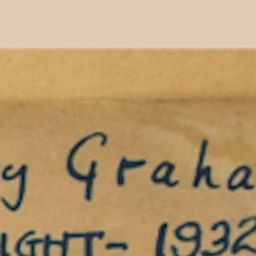 y Graha
IGHT- 1932